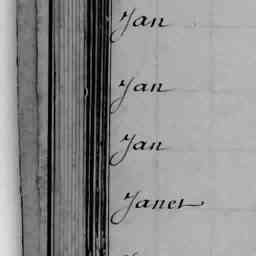 Jan
Jan
Jan
Janet